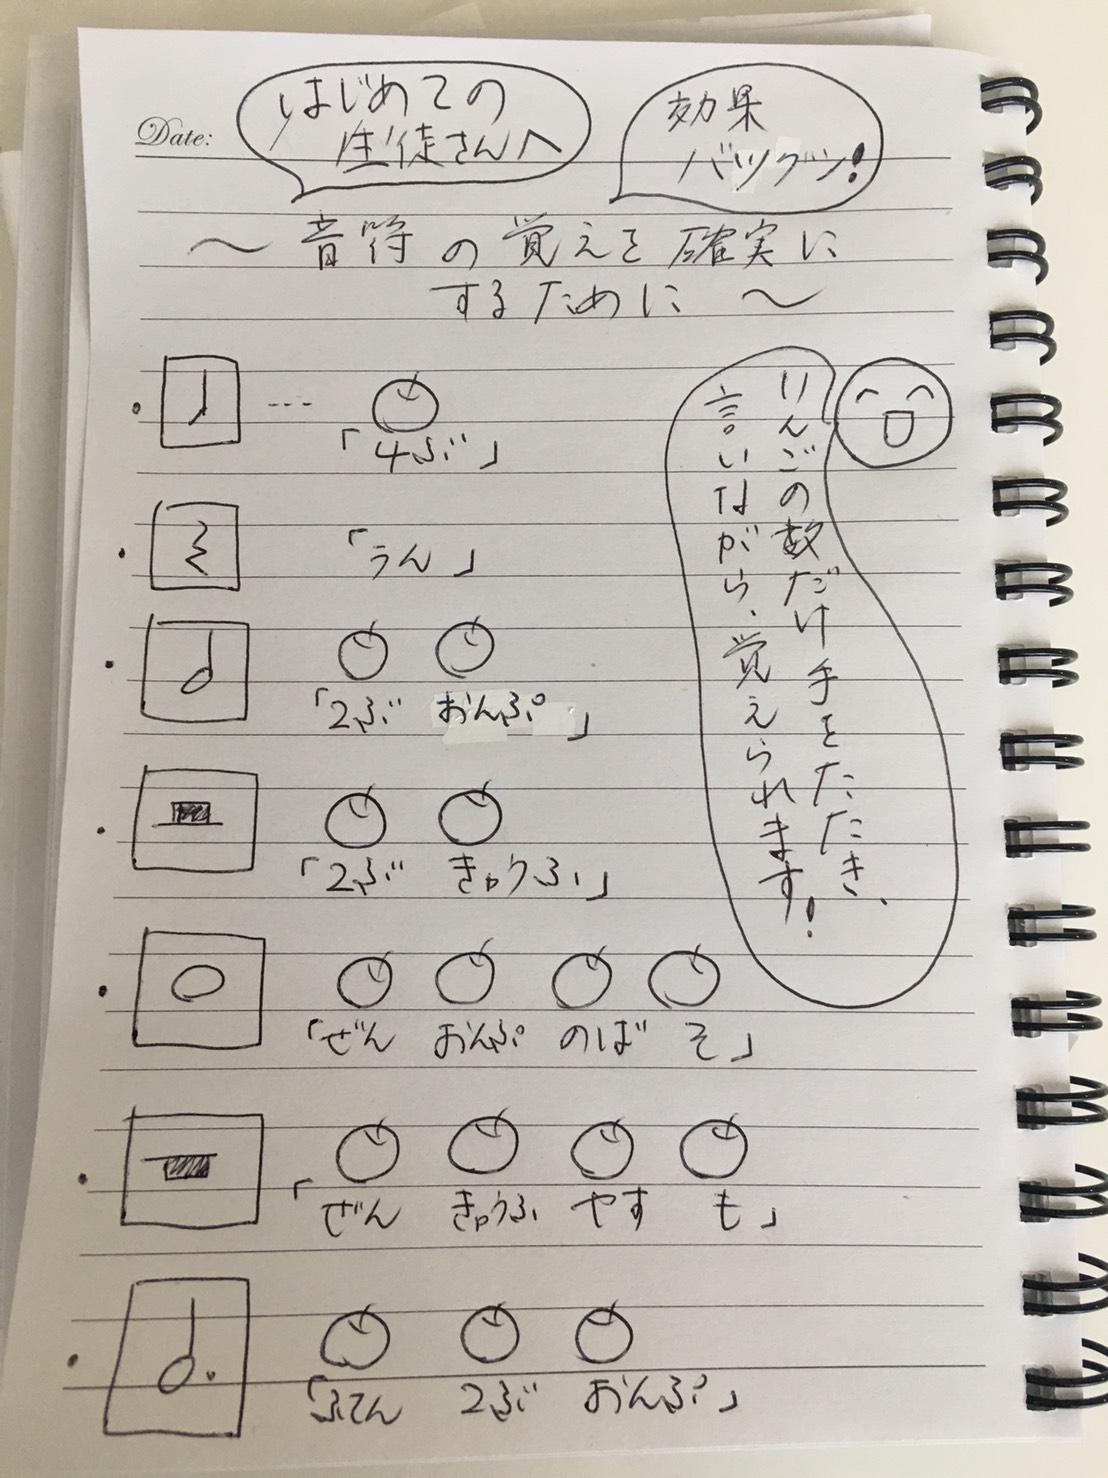 Date:
はじめての
生徒さんへ
効果
バツグン!
～音符の覚えを確実に
するために～
りんごの数だけ手をたたき、
言いながら、覚えられます!
「4ぶ」
「うん」
「2ぶ おんぷ」
「2ぶ きゅうふ」
「ぜん おんぷ のば そ」
「ぜん きゅうふ やす も」
「ふてん 2ぶ おんぷ」